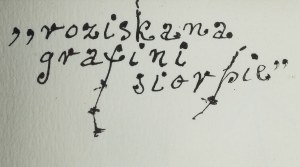 „roziskana
grafini
siorpie”